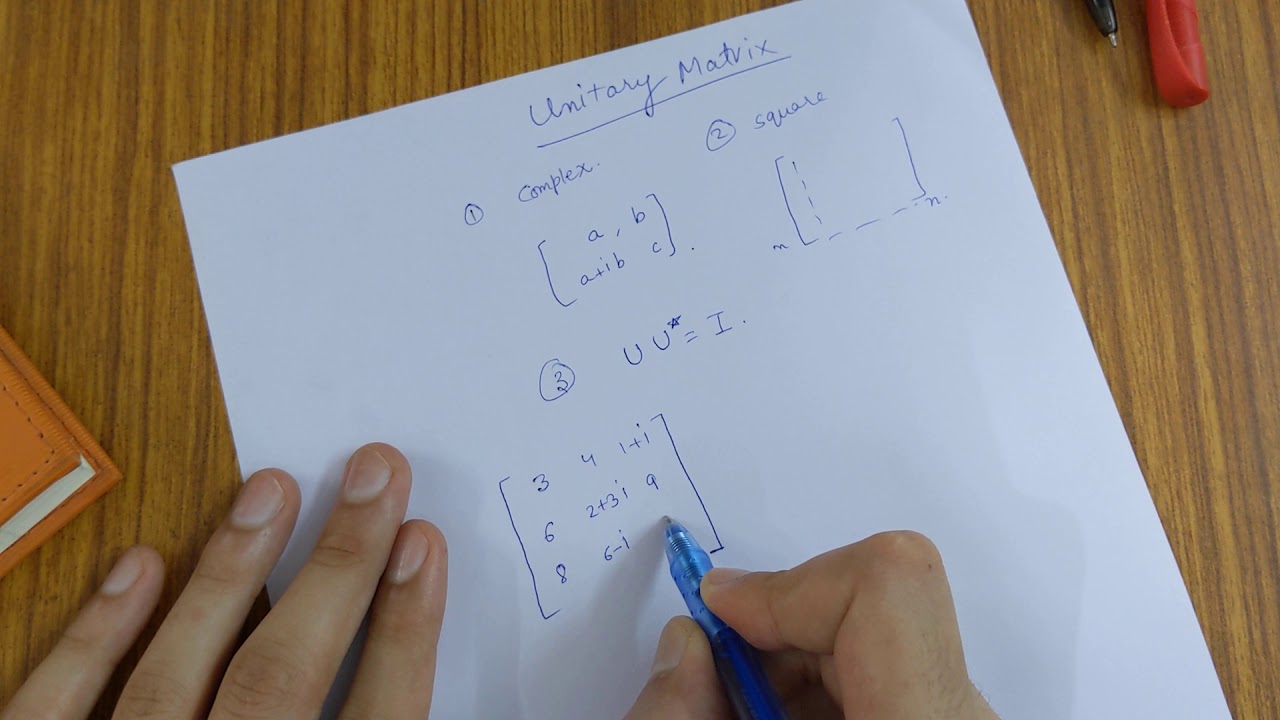 Unitary Matrix
① complex.
a , b
a+ib c .
② square
n n.
③ U U* = I .
3 4 1+i
6 2+3i 9
8 6-i